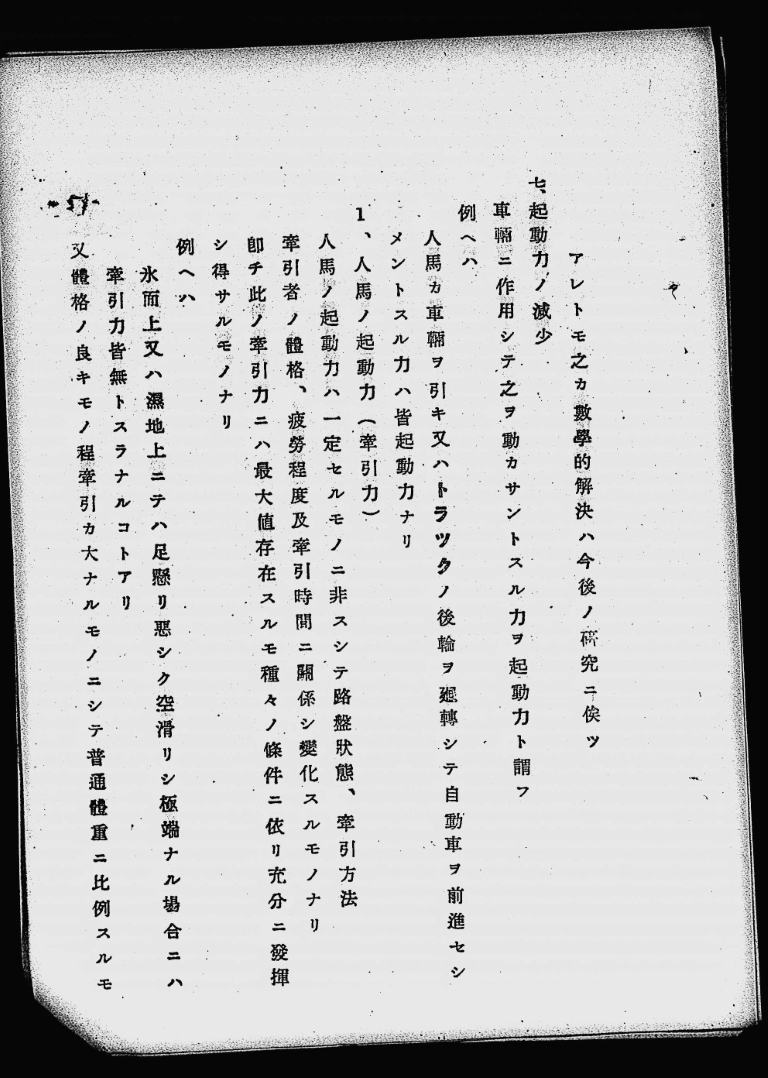 アレトモ之カ數學的解決ハ今後ノ研究ニ俟ツ
七、起動力ノ減少
車輛ニ作用シテ之ヲ動カサントスル力ヲ起動力ト謂フ
例ヘハ
人馬カ車輛ヲ引キ又ハトラツクノ後輪ヲ廻轉シテ自動車ヲ前進セシ
メントスル力ハ皆起動力ナリ
1、人馬ノ起動力(牽引力)
人馬ノ起動力ハ一定セルモノニ非スシテ路盤狀態、牽引方法
牽引者ノ體格、疲勞程度及牽引時間ニ關係シ變化スルモノナリ
卽チ此ノ牽引力ニハ最大値存在スルモ種々ノ條件ニ依リ充分ニ發揮
シ得サルモノナリ
例ヘハ
氷面上又ハ濕地上ニテハ足懸リ惡シク空滑リシ極端ナル場合ニハ
牽引力皆無トスラナルコトアリ
又體格ノ良キモノ程牽引カ大ナルモノニシテ普通體重ニ比例スルモ